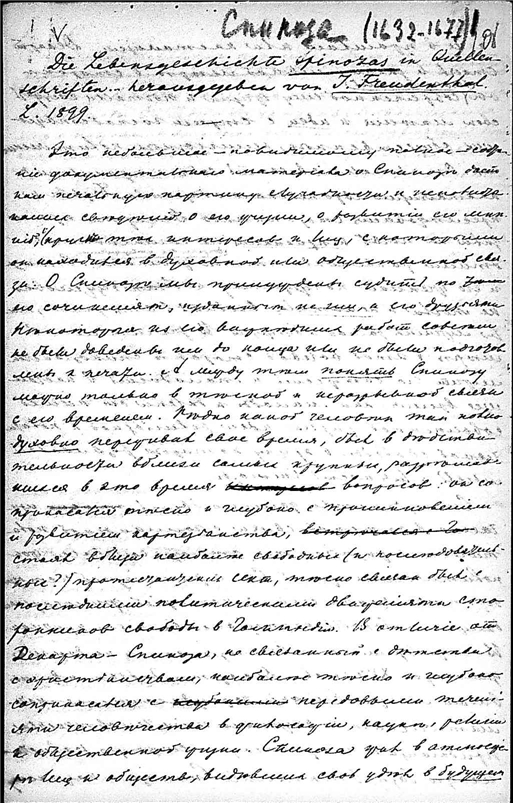 Спиноза (1632-1677)
V
Die Lebensgeschichte Spinozas in Quellen-
schriften. herausgegeben von J. Freudenthal.
L. 1899
Это небольшое повидимому полное собра-
ние документального материала о Спинозе даст
нам печальную картину случайности и
наших сведений о его жизни, о развитии его мне-
ний, круге тех интересов и лиц, с которыми
он находился в духовной или общественной свя-
зи. О Спинозе мы принуждены судить по
сочинениям, изданным им и его друзьями
Некоторые из его работ совсем
не были доведены им до конца или не были подготов
лены к печати. А между тем понять Спинозу
можно только в тесной и неразрывной связи
с его временем. Редко какой человек так полно
духовно переживал свое время, был в действи
тельности вблизи самых крупных,
в это время вопросов: он со
прикасался тесно и глубоко с проникновением
и развитием картезианства,
стоял вблизи наиболее свободных (и последователь
ных?) протестантских сект, тесно связан был с
последними политическими движениями сто-
ронников свободы в Голландии. В отличие от
Декарта - Спиноза, не связанный с детства
с христианством, наиболее тесно и глубоко
соприкасался с передовыми течени
ями человечества в философии, науке, религии
и общественной жизни. Спиноза жил в атмосфе
ре лиц и обществ, видевших свой удел в будущем